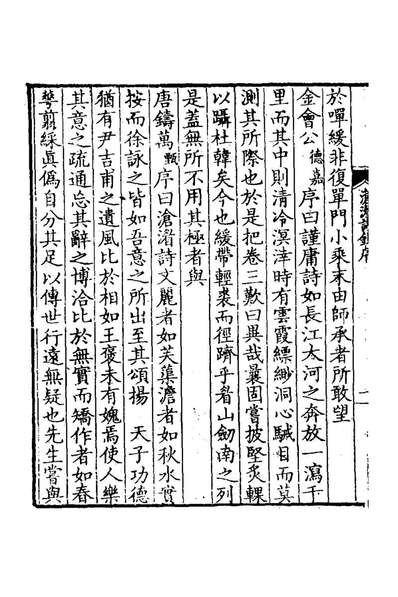 於嘽緩非復單門小乘末由師承者所敢望
金會公德嘉序曰謹庸詩如長江大河之奔放一瀉千
里而其中則清冷溟涬時有雲霞縹緲洞心駴目而莫
測其所際也於是把卷三歎曰異哉曩固嘗披堅炙輠
以躡杜韓矣今也緩帶輕裘而徑躋乎眉山劒南之列
是蓋無所不用其極者與
唐鑄萬甄序曰滄湑詩文麗者如芙蕖澹者如秋水實
按而徐詠之皆如吾意之所出至其頌揚 天子功德
猶有尹吉甫之遺風比於相如王褒未有媿焉使人樂
其意之疏通忘其辭之博洽比於無實而矯作者如春
蕚翦綵眞僞自分其足以傳世行遠無疑也先生嘗與